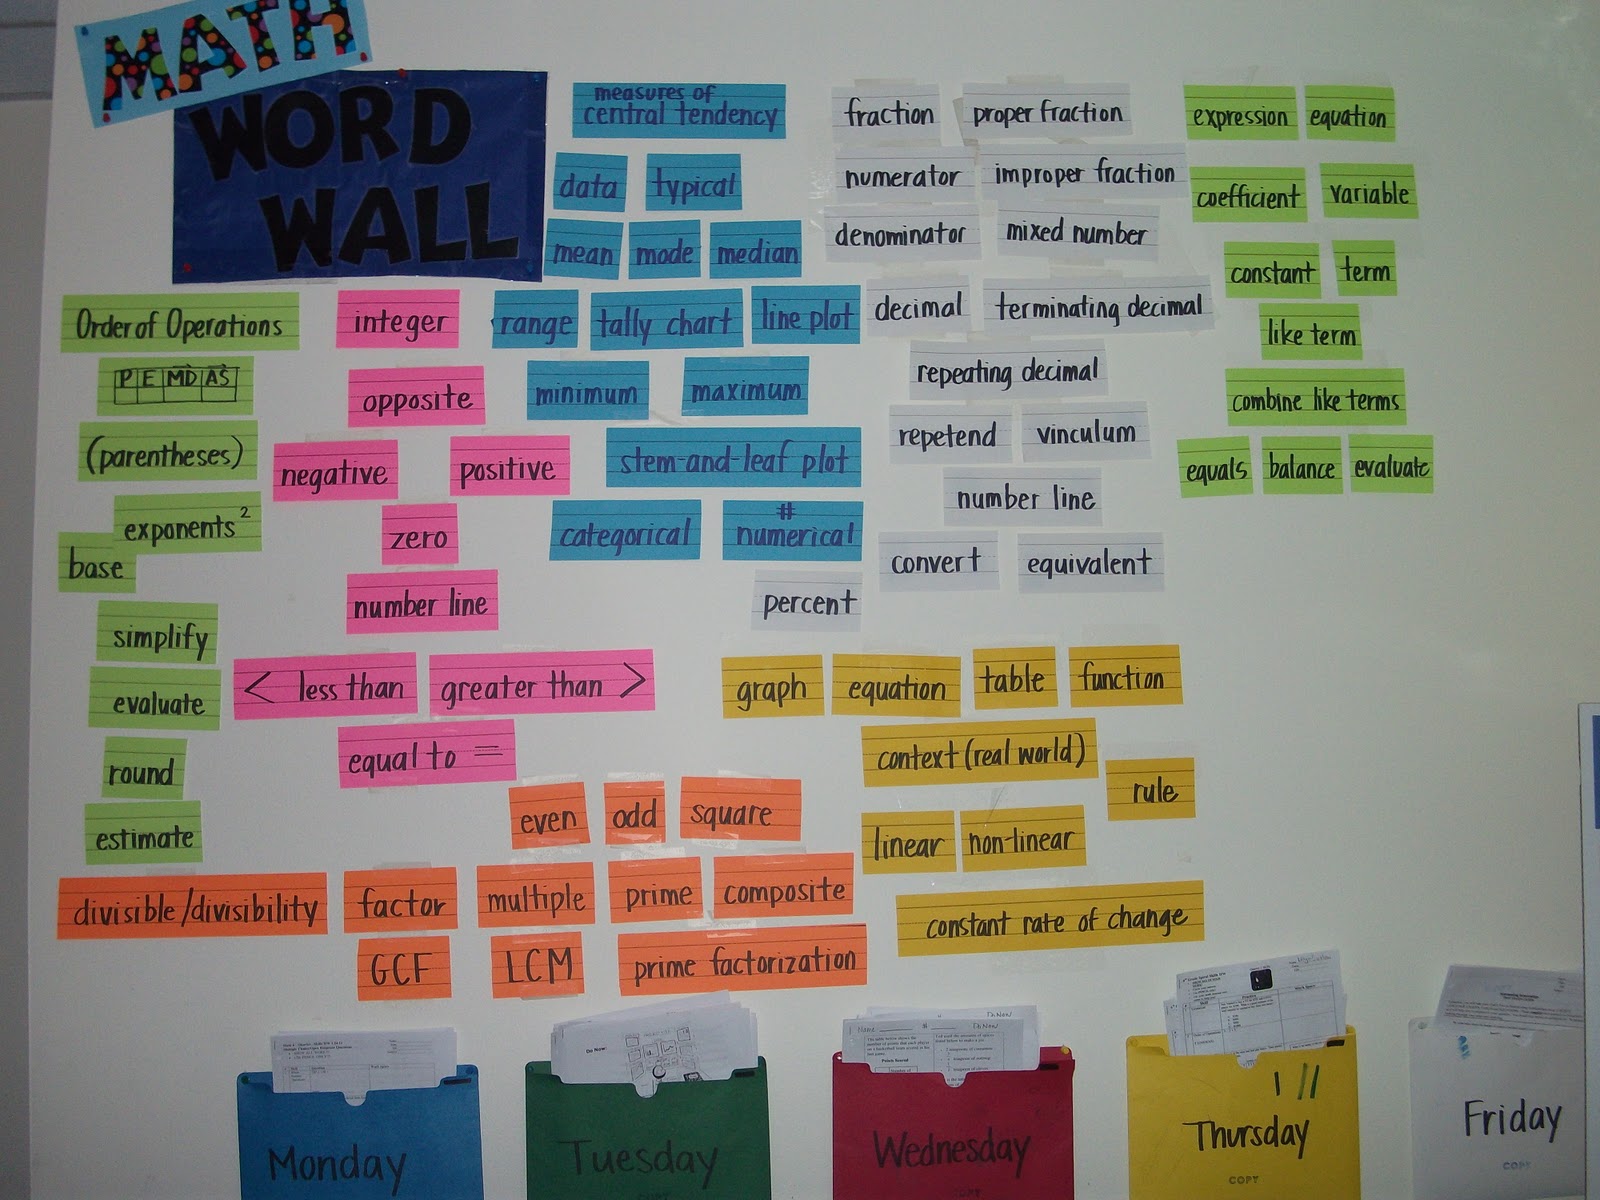 MATH
WORD
WALL
Order of Operations
P E MD AS
(parentheses)
exponents²
base
simplify
evaluate
round
estimate
integer
opposite
negative
positive
zero
number line
< less than
greater than >
equal to =
measures of
central tendency
data
typical
mean
mode
median
range
tally chart
line plot
minimum
maximum
stem-and-leaf plot
categorical
#
numerical
fraction
proper fraction
numerator
improper fraction
denominator
mixed number
decimal
terminating decimal
repeating decimal
repetend
vinculum
number line
convert
equivalent
percent
expression
equation
coefficient
variable
constant
term
like term
combine like terms
equals
balance
evaluate
graph
equation
table
function
context (real world)
rule
linear
non-linear
constant rate of change
even
odd
square
divisible/divisibility
factor
multiple
prime
composite
GCF
LCM
prime factorization
Do Now:
Name
Monday
Tuesday
COPY
Wednesday
COPY
Thursday
COPY
Friday
COPY